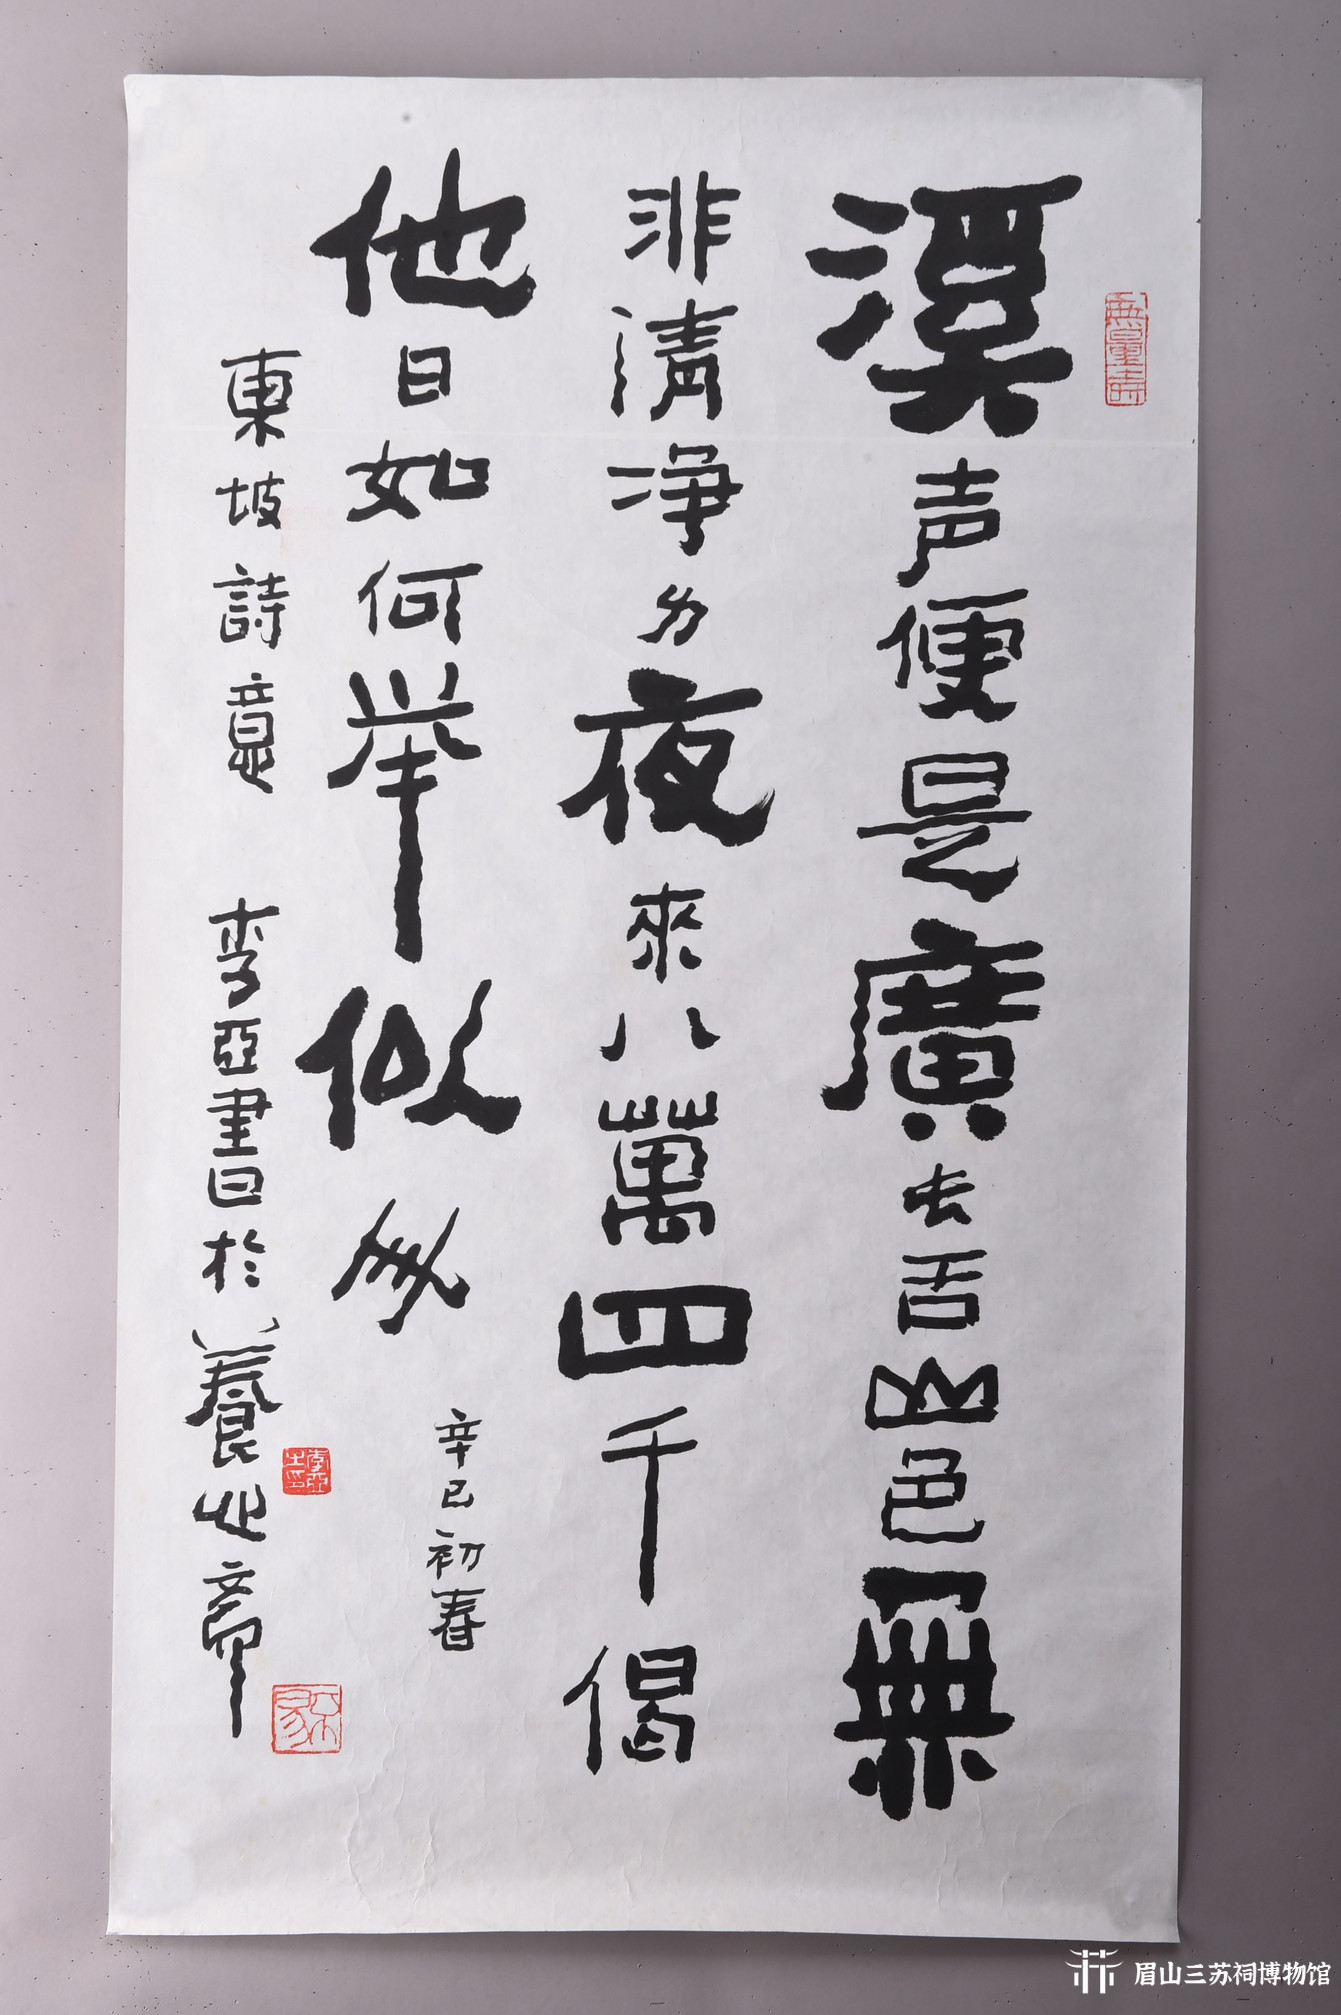 無量壽
溪声便是廣长舌山色無
非清净身夜來八萬四千偈
他日如何举似人
辛巳初春
東坡詩意 李亞書於養心齋
李亞之印
眉山三苏祠博物馆